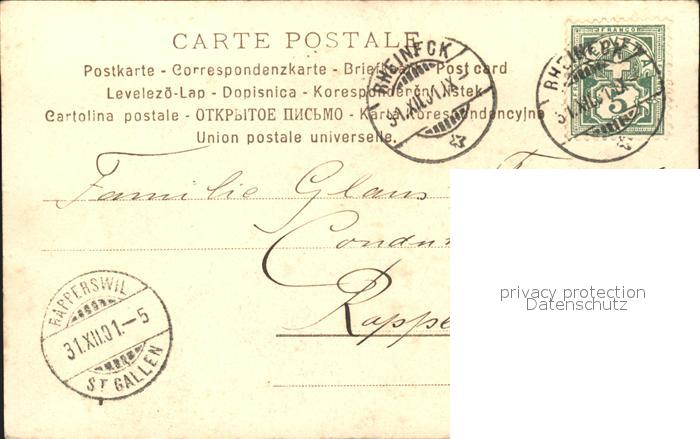 CARTE POSTALE
Postkarte - Correspondenzkarte - Briefkaart - Post card
Levelezö-Lap - Dopisnica - Korespondenční lístek
Cartolina postale - ОТКРЫТОЕ ПИСЬМО - Karta korespondencyjna
Union postale universelle.
RHEINECK
31.XII.01.IX
RHEINECK
31.XII.01.IX
FRANCO
5
Familie Glaus
Condu
Rappe
RAPPERSWIL
31.XII.01.-5
ST GALLEN
privacy protection
Datenschutz